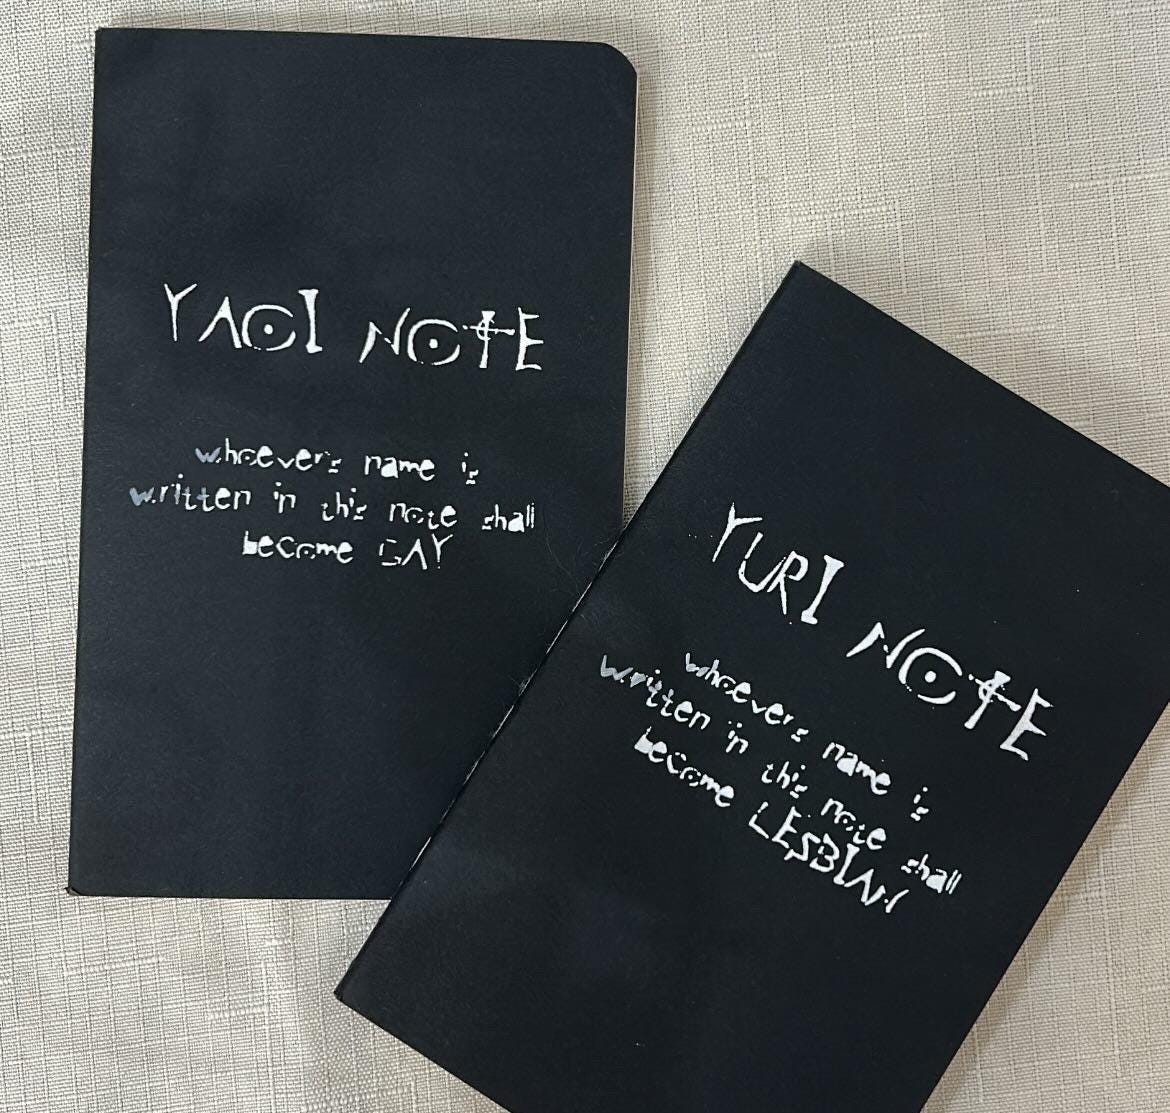 YAOI NOTE
whoever's name is
written in this note shall
become GAY
YURI NOTE
whoever's name is
written in this note shall
become LESBIAN